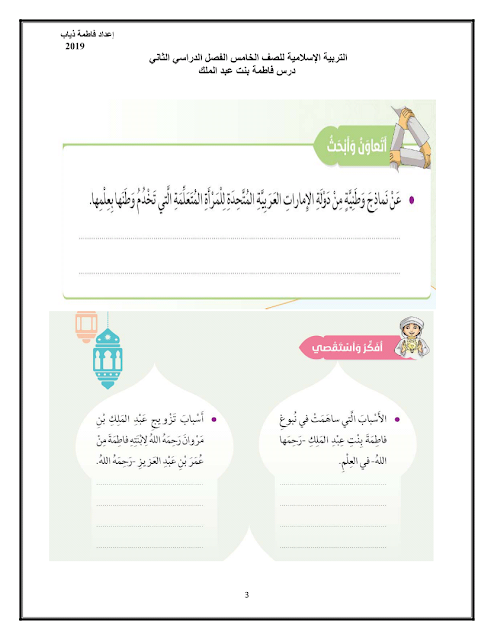 إعداد فاطمة ذياب
2019
التربية الإسلامية للصف الخامس الفصل الدراسي الثاني
درس فاطمة بنت عبد الملك
أَتَعاوَنُ وَأَبْحَثُ
• عَنْ نَماذِجَ وَطَنِيَّةٍ مِنْ دَوْلَةِ الإِماراتِ العَرَبِيَّةِ المُتَّحِدَةِ لِلْمَرْأَةِ المُتَعَلِّمَةِ الَّتي تَخْدُمُ وَطَنَها بِعِلْمِها.
أُفَكِّرُ وَأَسْتَقْصي
• الأَسْبابَ الَّتي ساهَمَتْ في نُبوغِ
فاطِمَةَ بِنْتِ عَبْدِ المَلِكِ -رَحِمَها
اللهُ- في العِلْمِ.
• أَسْبابَ تَزْويجِ عَبْدِ المَلِكِ بْنِ
مَرْوانَ رَحِمَهُ اللهُ لِابْنَتِهِ فاطِمَةَ مِنْ
عُمَرَ بْنِ عَبْدِ العَزيزِ -رَحِمَهُ اللهُ.
3